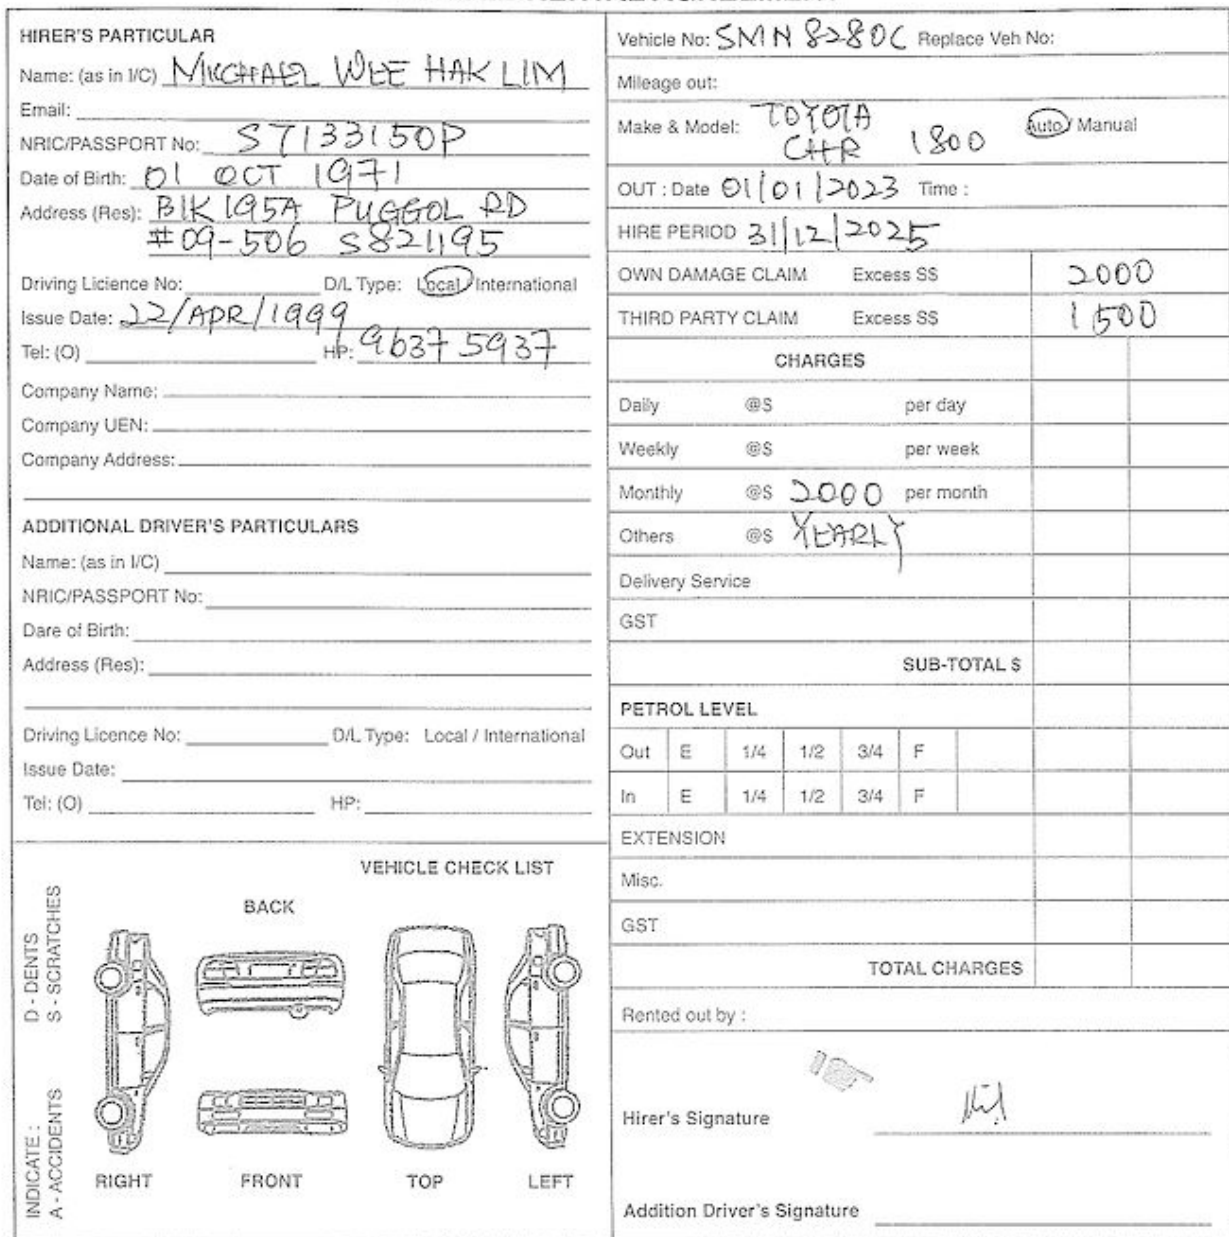 HIRER'S PARTICULAR
Name: (as in I/C) MICHAEL WEE HAK LIM
Email:
NRIC/PASSPORT No: S7133150P
Date of Birth: 01 OCT 1971
Address (Res): BlK 195A PUGGOL RD
#09-506 S821195
Driving Licience No: D/L Type: Local / International
Issue Date: 22/APR/1999
Tel: (O) HP: 9637 5937
Company Name:
Company UEN:
Company Address:
ADDITIONAL DRIVER'S PARTICULARS
Name: (as in I/C)
NRIC/PASSPORT No:
Dare of Birth:
Address (Res):
Driving Licence No: D/L Type: Local / International
Issue Date:
Tel: (O) HP:
VEHICLE CHECK LIST
INDICATE :
A - ACCIDENTS
D - DENTS
S - SCRATCHES
BACK
RIGHT FRONT TOP LEFT
Vehicle No: SMN 8280C Replace Veh No:
Mileage out:
Make & Model: TOYOTA Auto / Manual
CHR 1800
OUT : Date 01/01/2023 Time :
HIRE PERIOD 31/12/2025
OWN DAMAGE CLAIM Excess S$ 2000
THIRD PARTY CLAIM Excess S$ 1500
CHARGES
Daily @$ per day
Weekly @$ per week
Monthly @$ 2000 per month
Others @$ YEARLY
Delivery Service
GST
SUB-TOTAL $
PETROL LEVEL
Out E 1/4 1/2 3/4 F
In E 1/4 1/2 3/4 F
EXTENSION
Misc.
GST
TOTAL CHARGES
Rented out by :
Hirer's Signature
Addition Driver's Signature